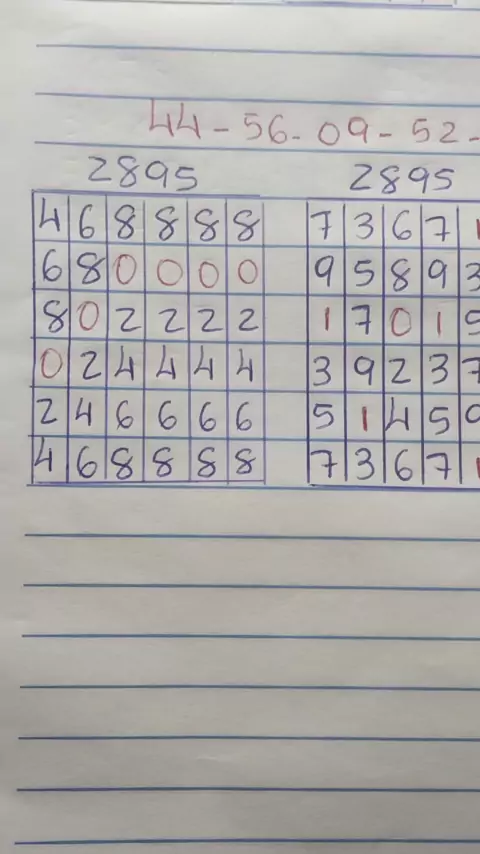 44-56-09-52-
2895 2895
4 6 8 8 8 8 7 3 6 7 1
6 8 0 0 0 0 9 5 8 9 3
8 0 2 2 2 2 1 7 0 1 5
0 2 4 4 4 4 3 9 2 3 7
2 4 6 6 6 6 5 1 4 5 9
4 6 8 8 8 8 7 3 6 7 1